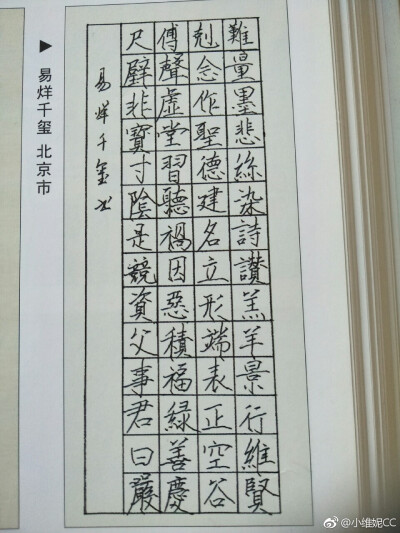 難量墨悲絲染詩讚羔羊景行維賢
剋念作聖德建名立形端表正空谷
傅聲虛堂習聽禍因惡積福緣善慶
尺璧非寶寸陰是競資父事君曰嚴
易烊千玺书
易烊千玺 北京市
@小维妮CC